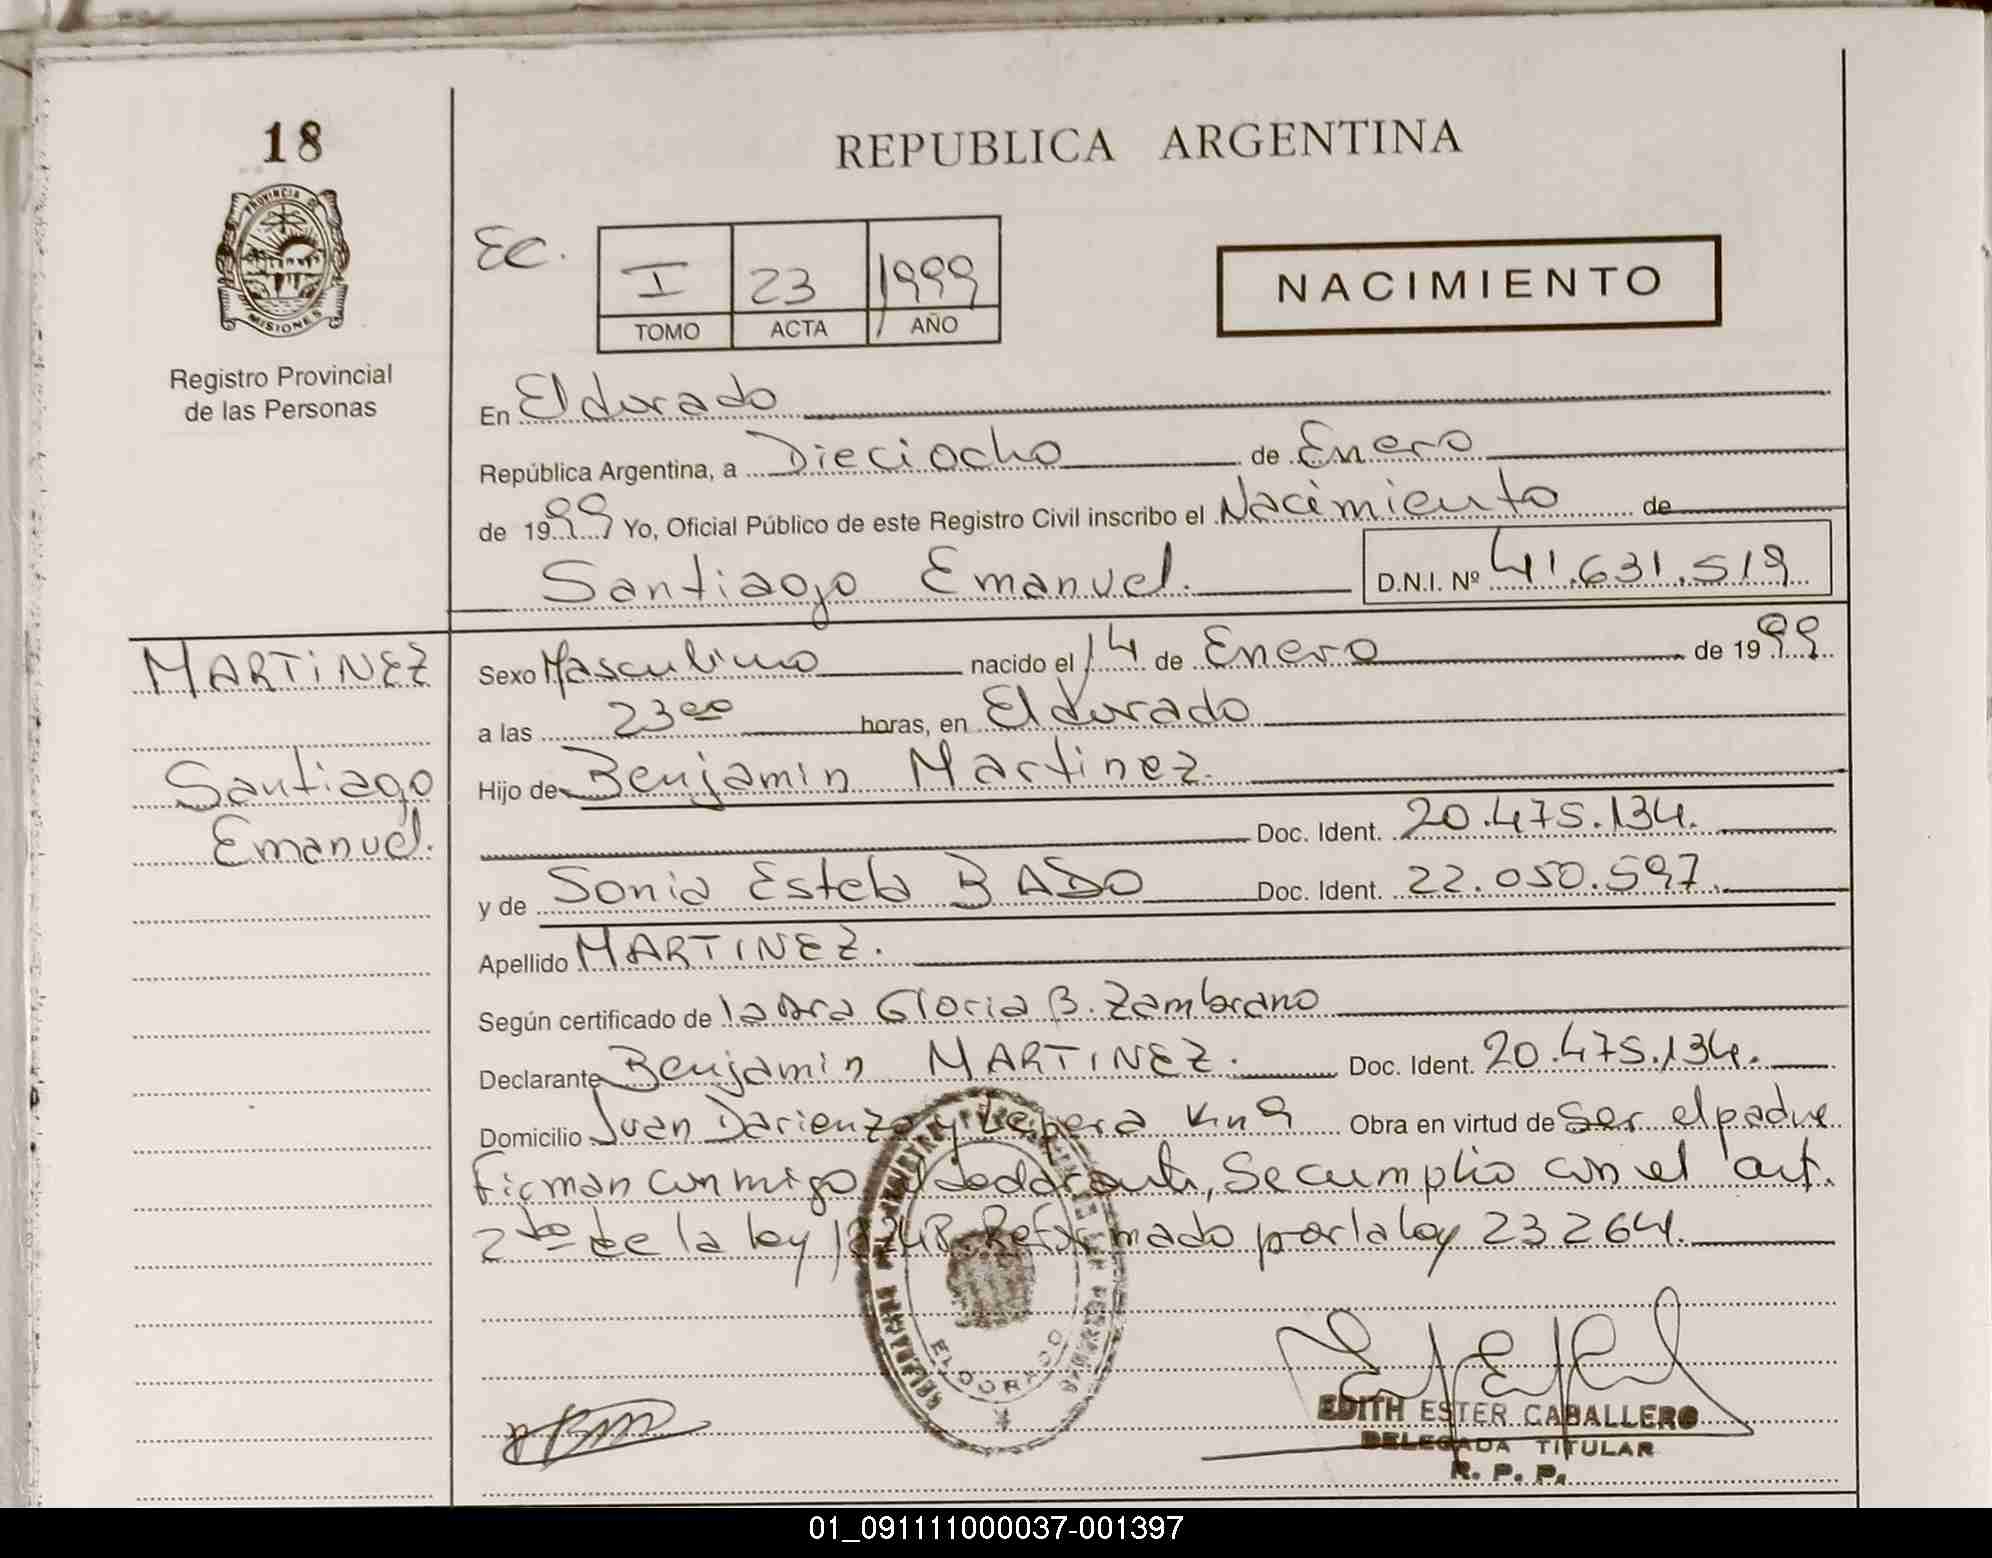 18
PROVINCIA DE
MISIONES
Registro Provincial
de las Personas
REPUBLICA ARGENTINA
EC.
I 23 1999
TOMO ACTA AÑO
NACIMIENTO
En Eldorado
República Argentina, a Dieciocho de Enero
de 1999 Yo, Oficial Público de este Registro Civil inscribo el Nacimiento de
Santiago Emanuel. D.N.I. Nº 41.631.519
MARTINEZ
Santiago
Emanuel.
Sexo Masculino nacido el 14 de Enero de 1999
a las 23 00 horas, en Eldorado
Hijo de Benjamin Martinez.
Doc. Ident. 20.475.134.
y de Sonia Estela BADO Doc. Ident. 22.050.597.
Apellido MARTINEZ.
Según certificado de la Dra Gloria B. Zambrano
Declarante Benjamin MARTINEZ. Doc. Ident. 20.475.134.
Domicilio Juan Darienzo y Lepera Km 9 Obra en virtud de Ser el padre
Firman conmigo el declarante, Se cumplio con el art.
2do de la ley 18248 Reformado por la ley 23264.
ELDORADO
EDITH ESTER CABALLERO
DELEGADA TITULAR
R. P. P.
01_091111000037-001397